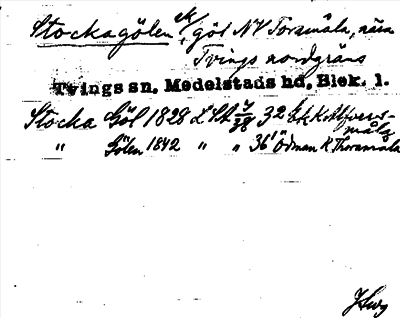 Stockagölen ek/göl NV Torsmåla, nära
Tvings nordgräns
Tvings sn, Medelstads hd, Blek. l.
Stocka Göl 1828 LSA 32 Ek K
måla
" Gölen 1842 " " 36 Ödman K Thorsmåla